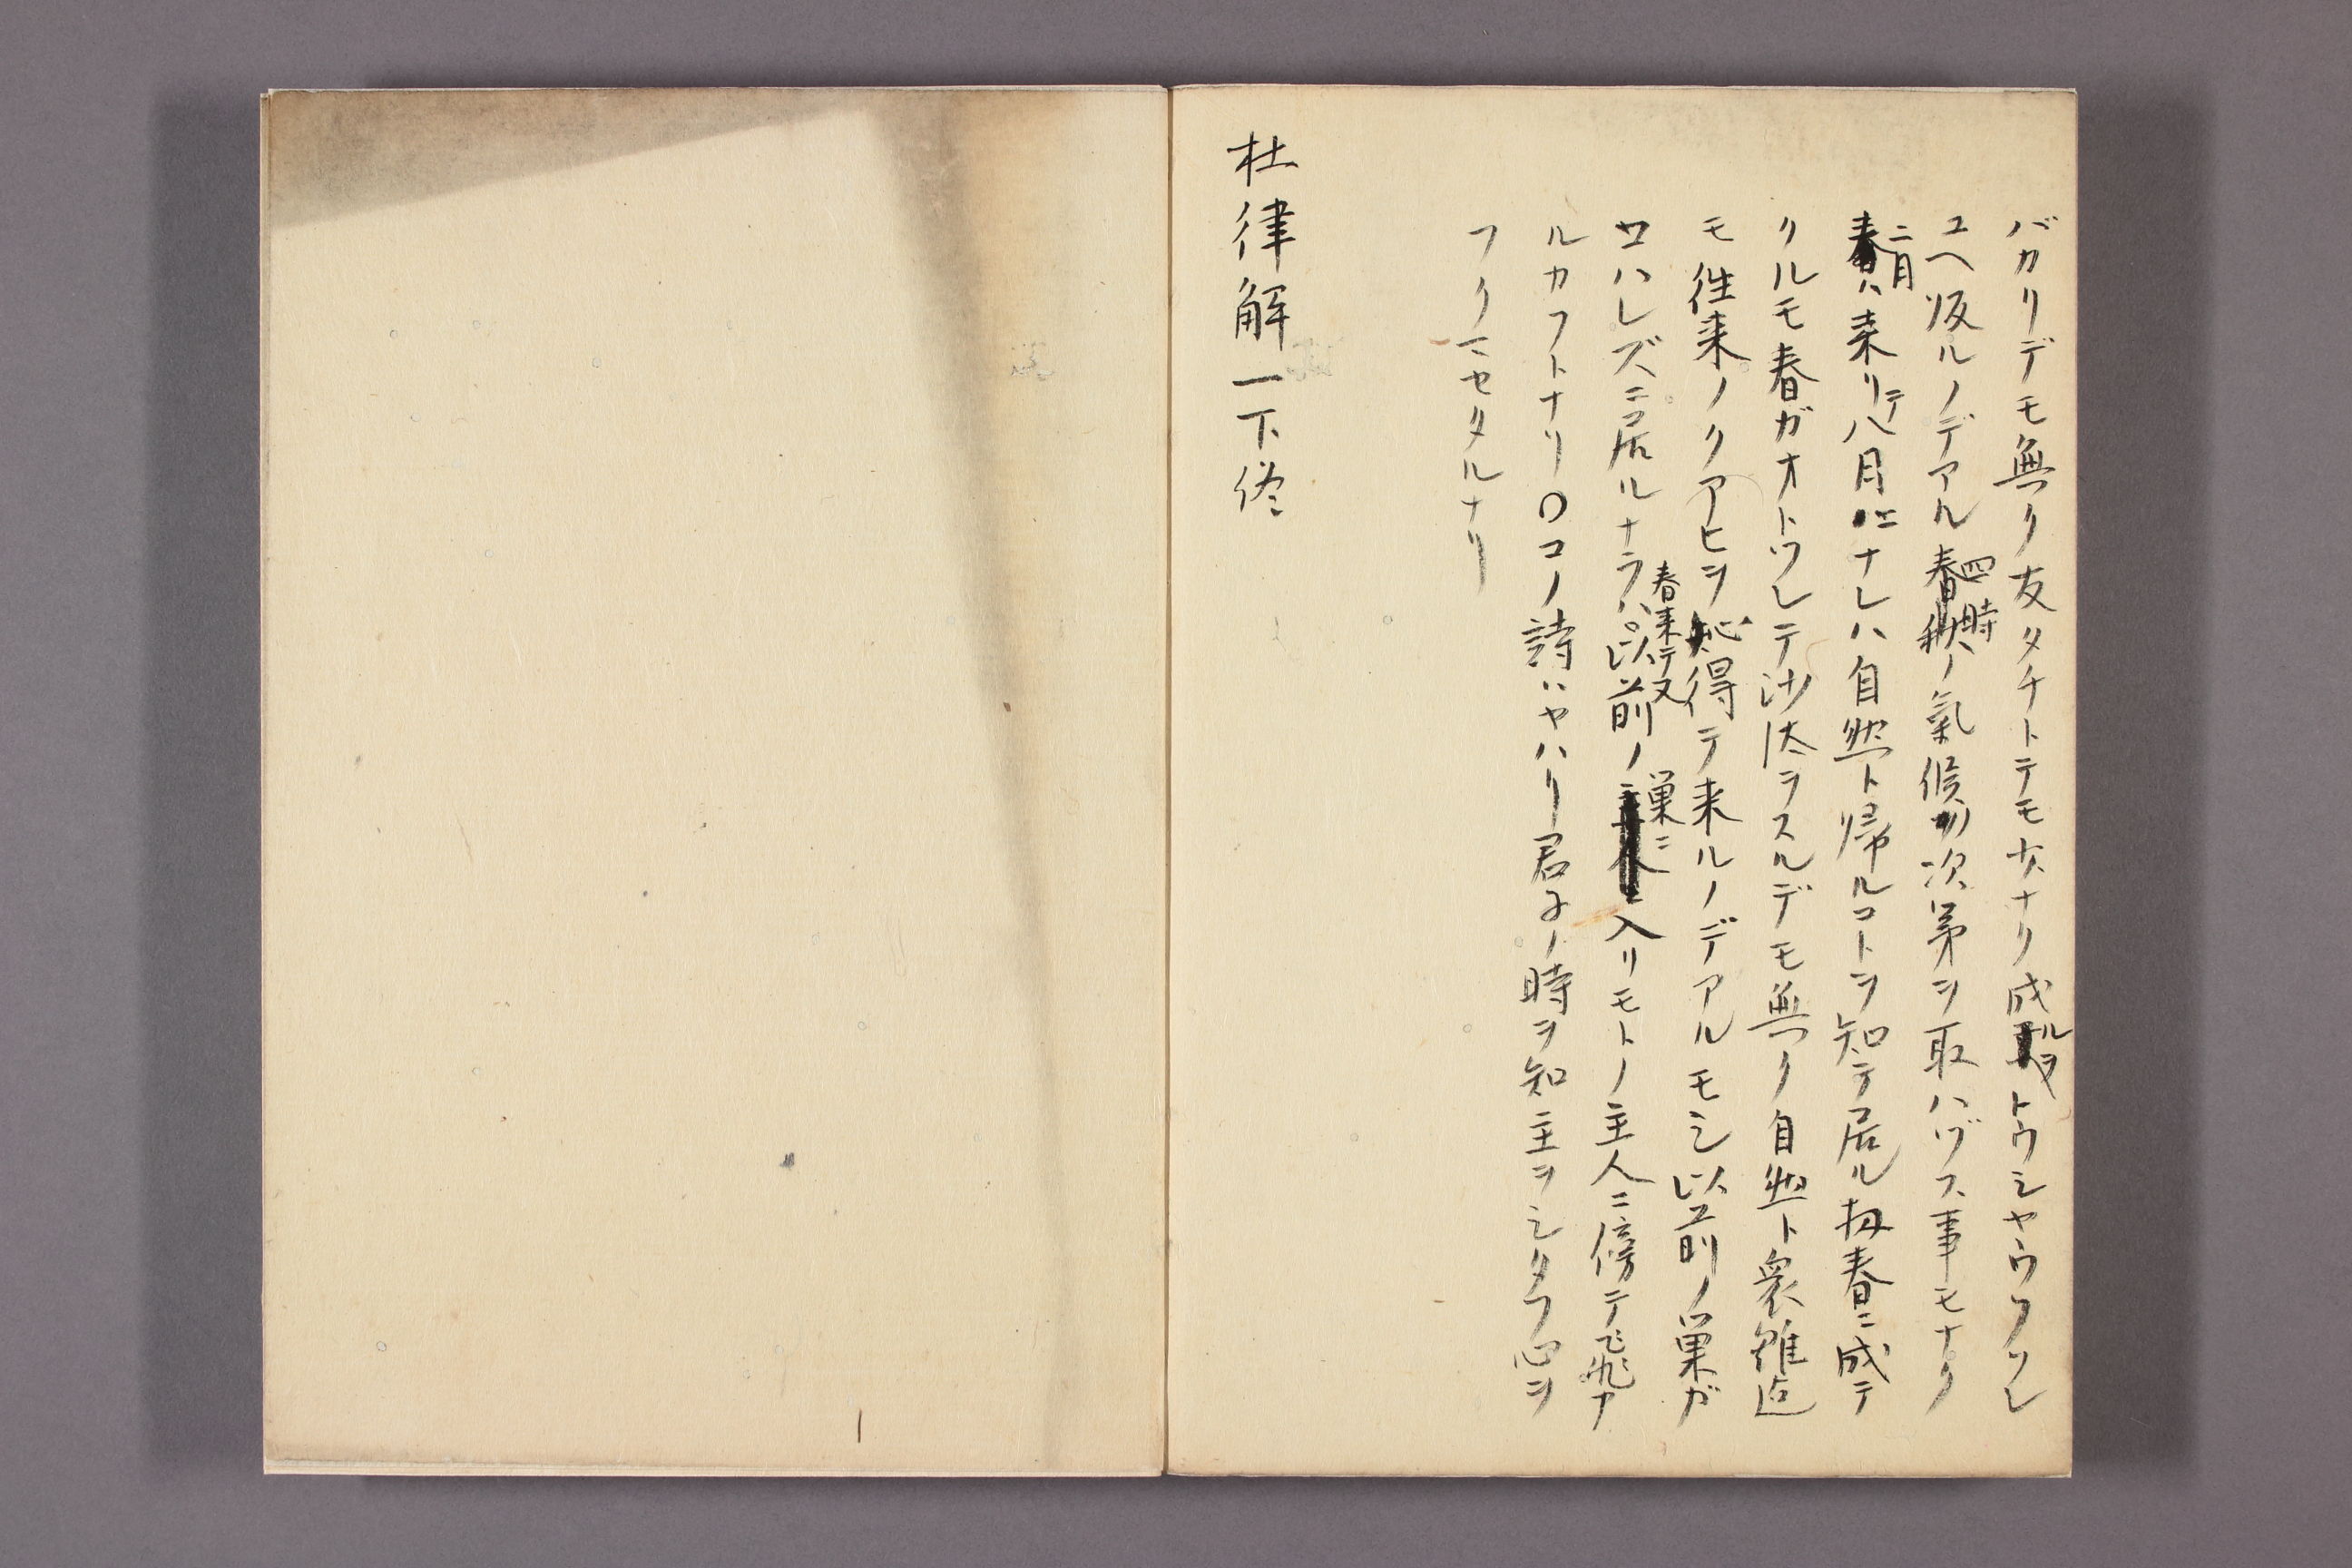 バカリデモ無ク友タチトテモナスナリ成ルヲトウシヤウフソレ
ユヘ皈ルノデアル四時ノ氣候ガ次第ヲ取ハヅス事モナク
二月ハ来リテ八月ニナレハ自然ト帰ルコトヲ知テ居ル扨春ニ成テ
クルモ春ガオトヅレテ沙汰ヲスルデモ無ク自然ト衆雛迄
モ徃来ノクアヒヲ心得テ来ルノデアルモシ以前ノ巣ガ
サハレズニ居ルナラハ春来テ又以前ノ巣ニ入リモトノ主人ニ傍テ飛ナ
ルカフトナリ〇コノ詩ハヤハリ君子ノ時ヲ知主ヲシタフ心ヲ
フクマセタルナリ
杜律解一下終